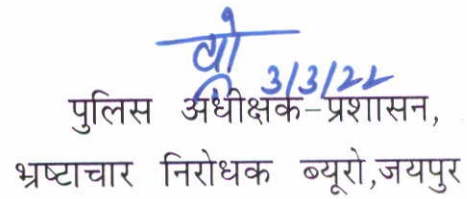 3/3/22
पुलिस अधीक्षक-प्रशासन,
भ्रष्टाचार निरोधक ब्यूरो,जयपुर